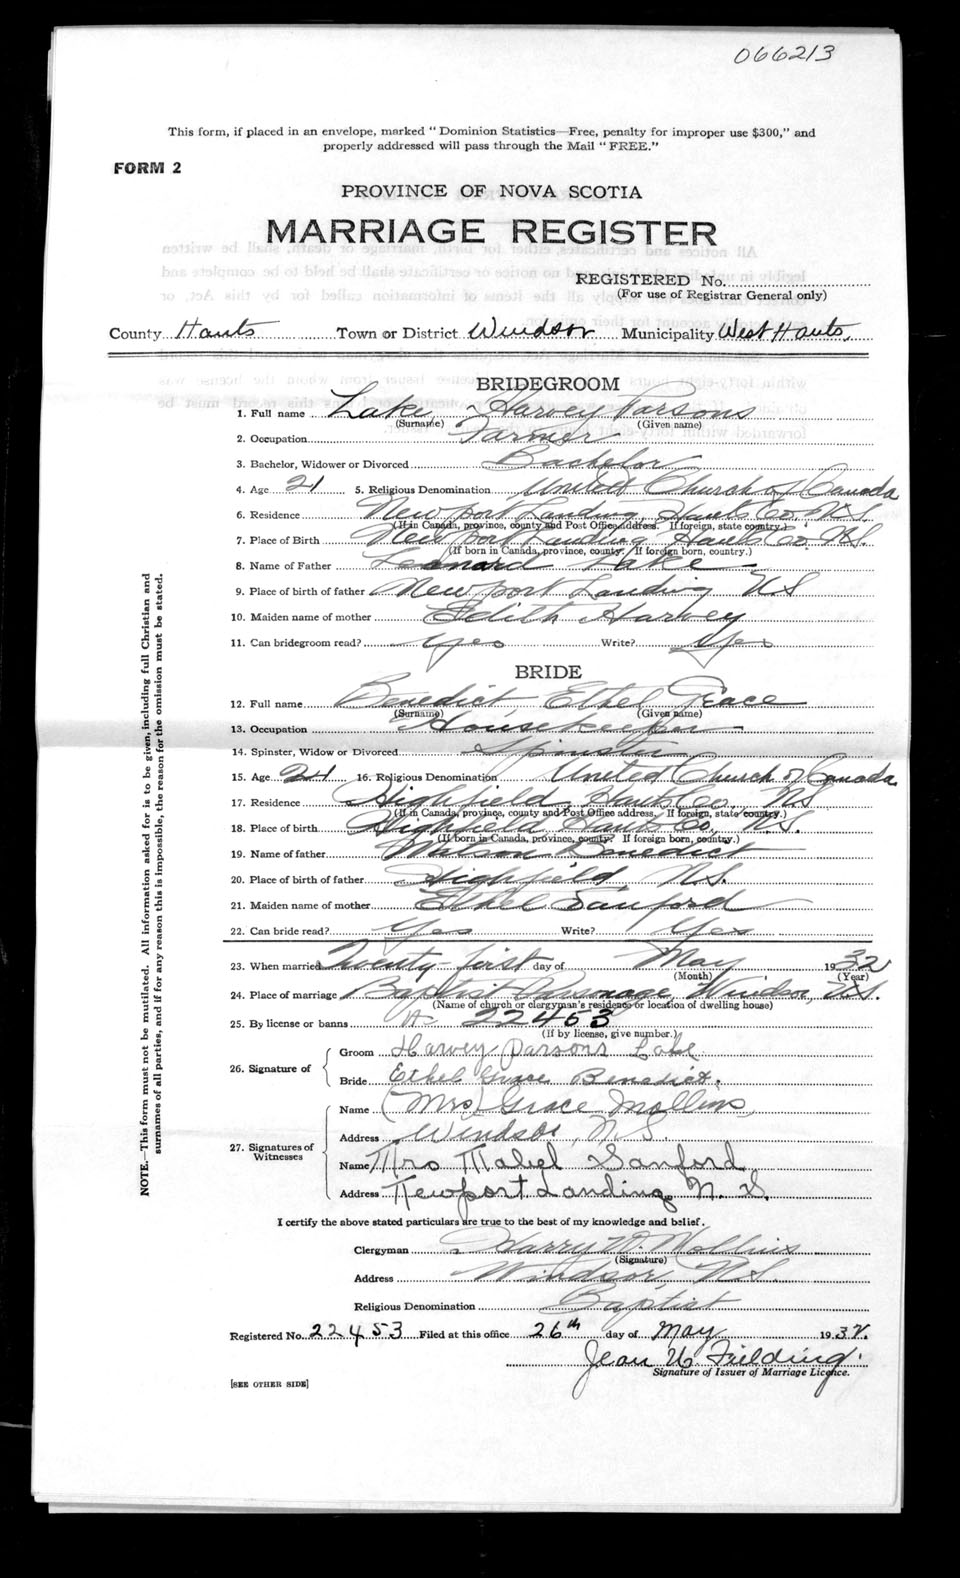 066213
This form, if placed in an envelope, marked "Dominion Statistics—Free, penalty for improper use $300," and
properly addressed will pass through the Mail "FREE."
FORM 2
PROVINCE OF NOVA SCOTIA
MARRIAGE REGISTER
REGISTERED No.
(For use of Registrar General only)
County Hants Town or District Windsor Municipality West Hants,
BRIDEGROOM
1. Full name Lake Harvey Parsons
(Surname) (Given name)
2. Occupation Farmer
3. Bachelor, Widower or Divorced Bachelor
4. Age 21 5. Religious Denomination United Church of Canada
6. Residence Newport Landing, Hants Co. N.S.
(If in Canada, province, county and Post Office address. If foreign, state country.)
7. Place of Birth Newport Landing Hants Co. N.S.
(If born in Canada, province, county. If foreign born, country.)
8. Name of Father Leonard Lake
9. Place of birth of father Newport Landing N.S
10. Maiden name of mother Edith Harvey
11. Can bridegroom read? Yes Write? Yes
BRIDE
12. Full name Benedict Ethel Grace
(Surname) (Given name)
13. Occupation Housekeeper
14. Spinster, Widow or Divorced Spinster
15. Age 16. Religious Denomination United Church of Canada
17. Residence Highfield, Hants Co., N.S
(If in Canada, province, county and Post Office address. If foreign, state country.)
18. Place of birth Highfield Hants Co, N.S.
(If born in Canada, province, county? If foreign born, country.)
19. Name of father Watson Benedict
20. Place of birth of father Highfield N.S.
21. Maiden name of mother Ethel Sanford
22. Can bride read? Yes Write? Yes
23. When married Twenty-first day of May 1932
(Month) (Year)
24. Place of marriage Baptist Parsonage, Windsor, N.S.
(Name of church or clergyman's residence or location of dwelling house)
25. By license or banns 22453
(If by license, give number.)
26. Signature of
Groom Harvey Parsons Lake
Bride Ethel Grace Benedict.
27. Signatures of Witnesses
Name (Mrs) Grace Mollins
Address Windsor, N.S.
Name Mrs Mabel Sanford
Address Newport Landing, N. S.
I certify the above stated particulars are true to the best of my knowledge and belief.
Clergyman Harry W. Mollins
(Signature)
Address Windsor, N.S.
Religious Denomination Baptist
Registered No. 22453 Filed at this office 26th day of May 1932.
Jean W. Fielding.
Signature of Issuer of Marriage Licence.
[SEE OTHER SIDE]
NOTE.—This form must not be mutilated. All information asked for is to be given, including full Christian and
surnames of all parties, and if for any reason this is impossible, the reason for the omission must be stated.